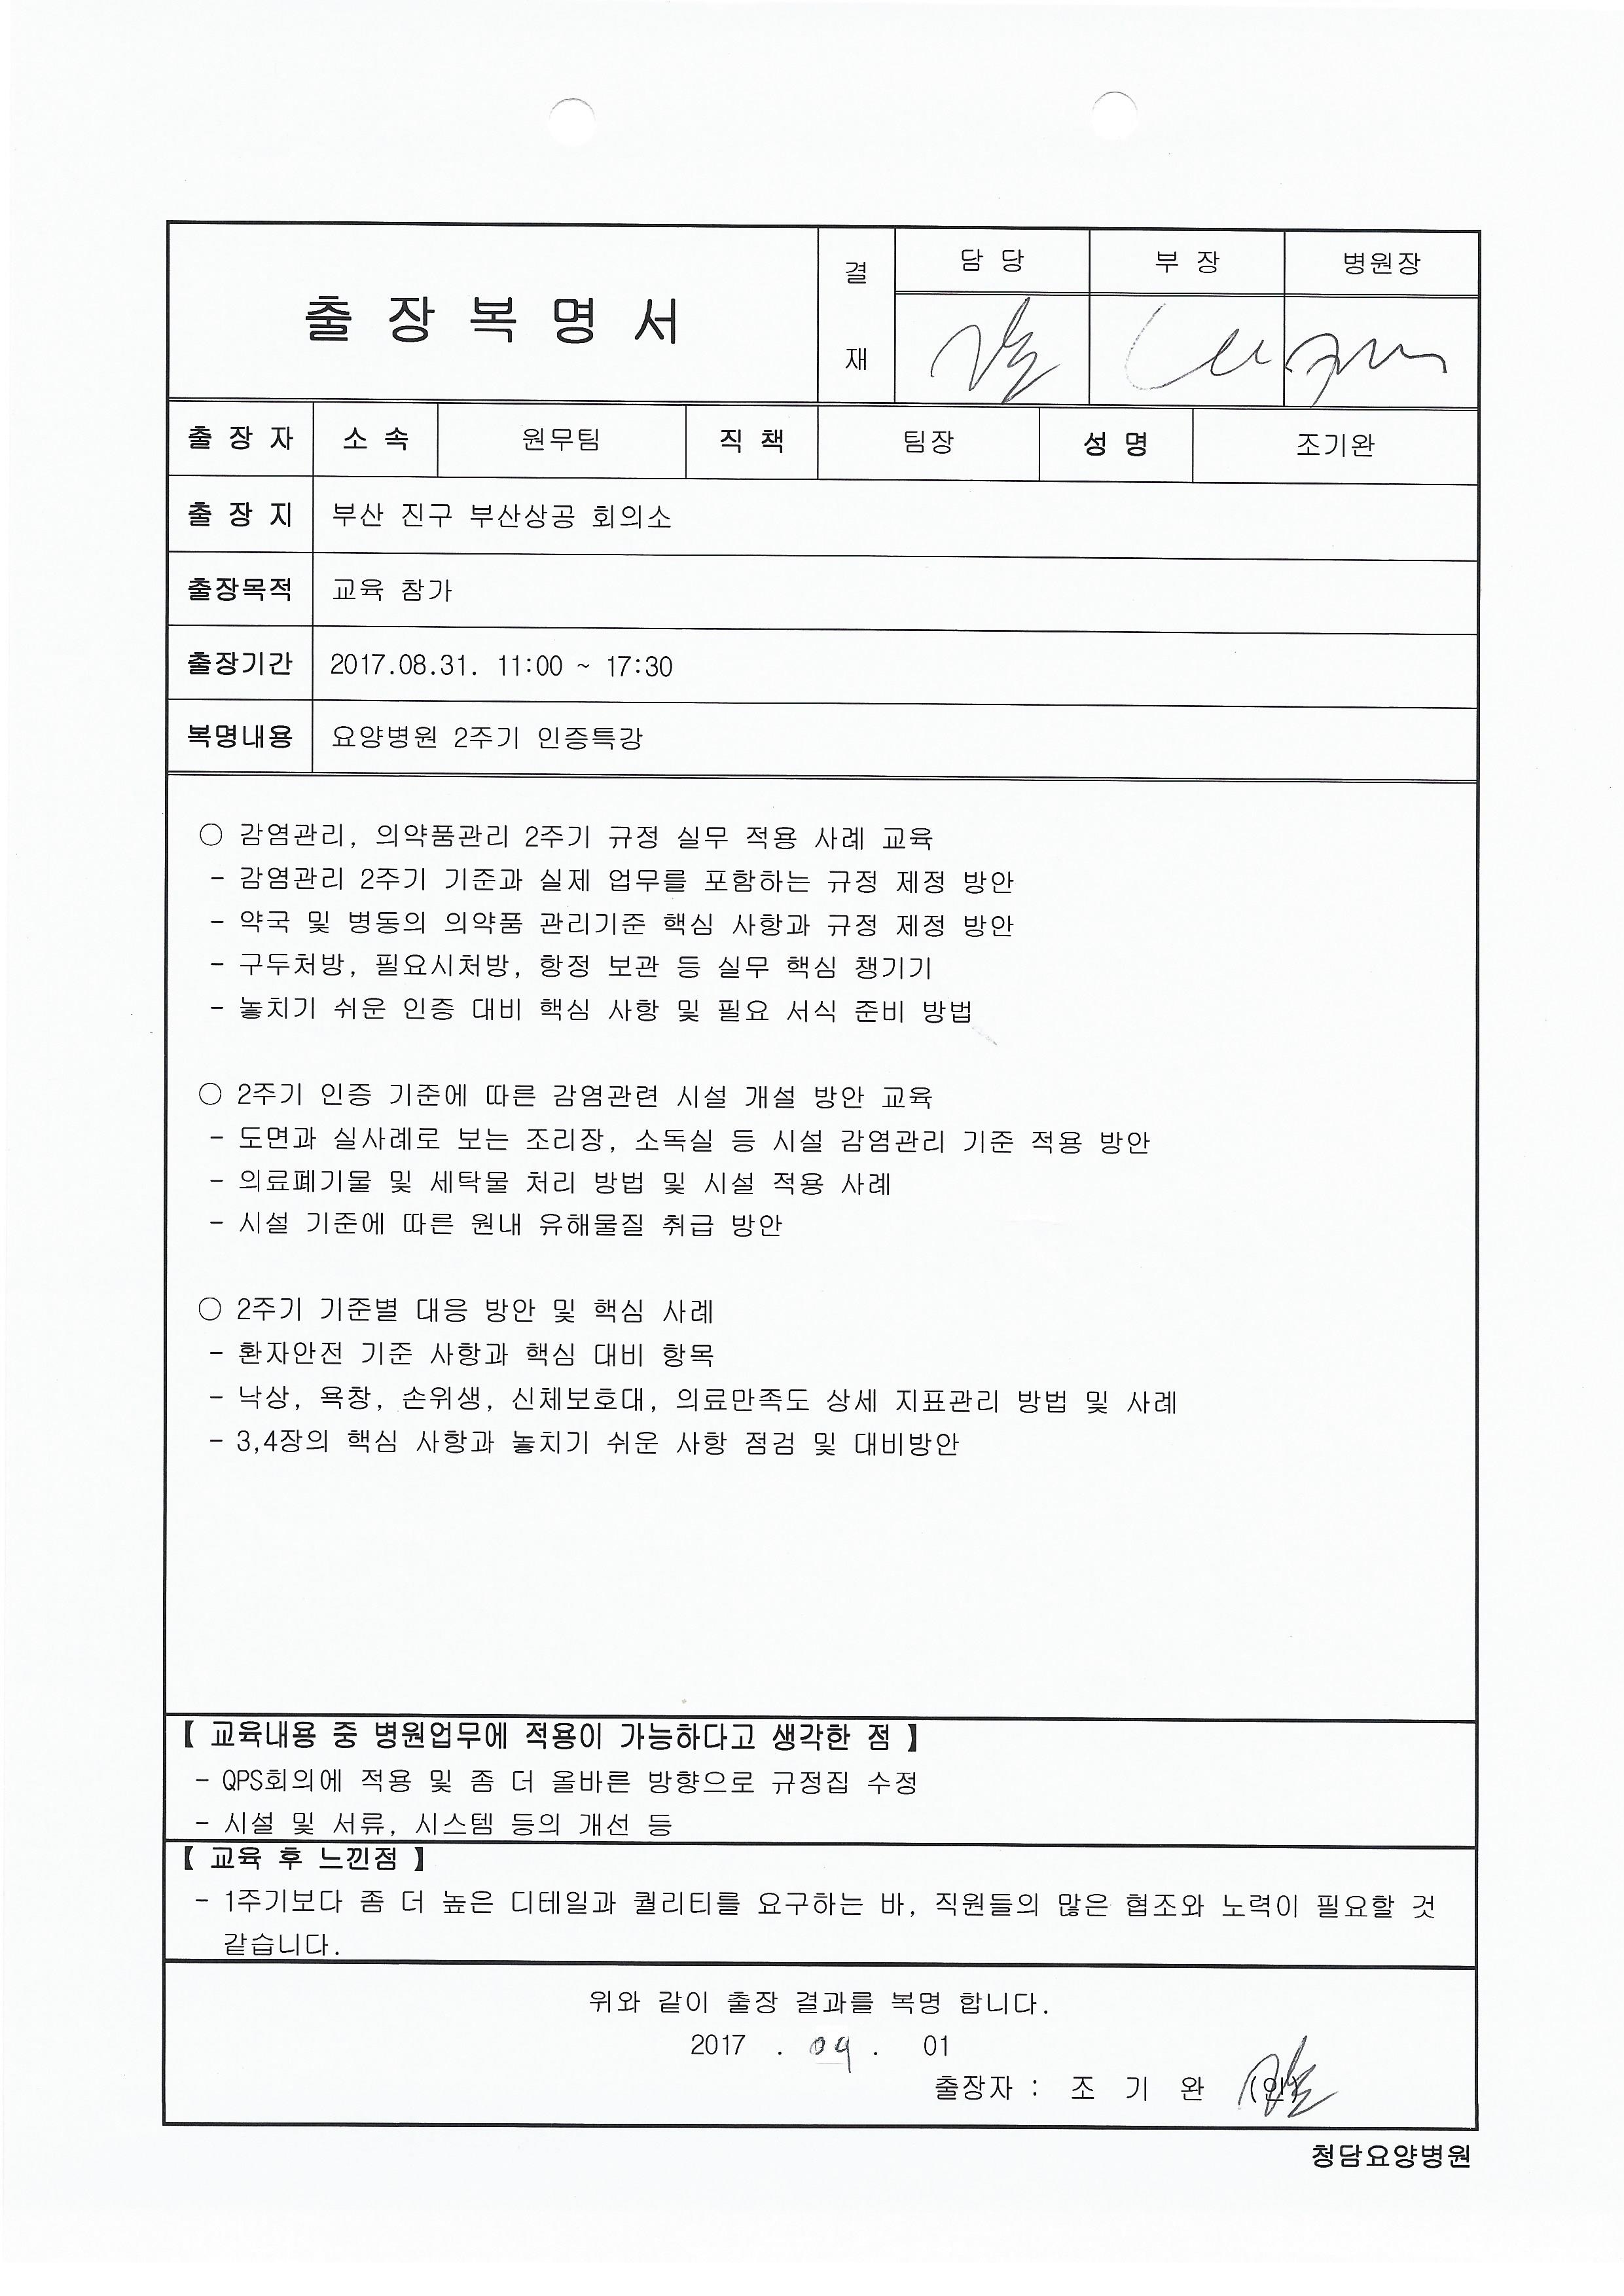 출 장 복 명 서
결 재
담 당
부 장
병원장
출 장 자
소 속
원무팀
직 책
팀장
성 명
조기완
출 장 지
부산 진구 부산상공 회의소
출장목적
교육 참가
출장기간
2017.08.31. 11:00 ~ 17:30
복명내용
요양병원 2주기 인증특강
○ 감염관리, 의약품관리 2주기 규정 실무 적용 사례 교육
- 감염관리 2주기 기준과 실제 업무를 포함하는 규정 제정 방안
- 약국 및 병동의 의약품 관리기준 핵심 사항과 규정 제정 방안
- 구두처방, 필요시처방, 항정 보관 등 실무 핵심 챙기기
- 놓치기 쉬운 인증 대비 핵심 사항 및 필요 서식 준비 방법
○ 2주기 인증 기준에 따른 감염관련 시설 개설 방안 교육
- 도면과 실사례로 보는 조리장, 소독실 등 시설 감염관리 기준 적용 방안
- 의료폐기물 및 세탁물 처리 방법 및 시설 적용 사례
- 시설 기준에 따른 원내 유해물질 취급 방안
○ 2주기 기준별 대응 방안 및 핵심 사례
- 환자안전 기준 사항과 핵심 대비 항목
- 낙상, 욕창, 손위생, 신체보호대, 의료만족도 상세 지표관리 방법 및 사례
- 3,4장의 핵심 사항과 놓치기 쉬운 사항 점검 및 대비방안
【 교육내용 중 병원업무에 적용이 가능하다고 생각한 점 】
- QPS회의에 적용 및 좀 더 올바른 방향으로 규정집 수정
- 시설 및 서류, 시스템 등의 개선 등
【 교육 후 느낀점 】
- 1주기보다 좀 더 높은 디테일과 퀄리티를 요구하는 바, 직원들의 많은 협조와 노력이 필요할 것
같습니다.
위와 같이 출장 결과를 복명 합니다.
2017 . 09 . 01
출장자 : 조 기 완 (인)
청담요양병원